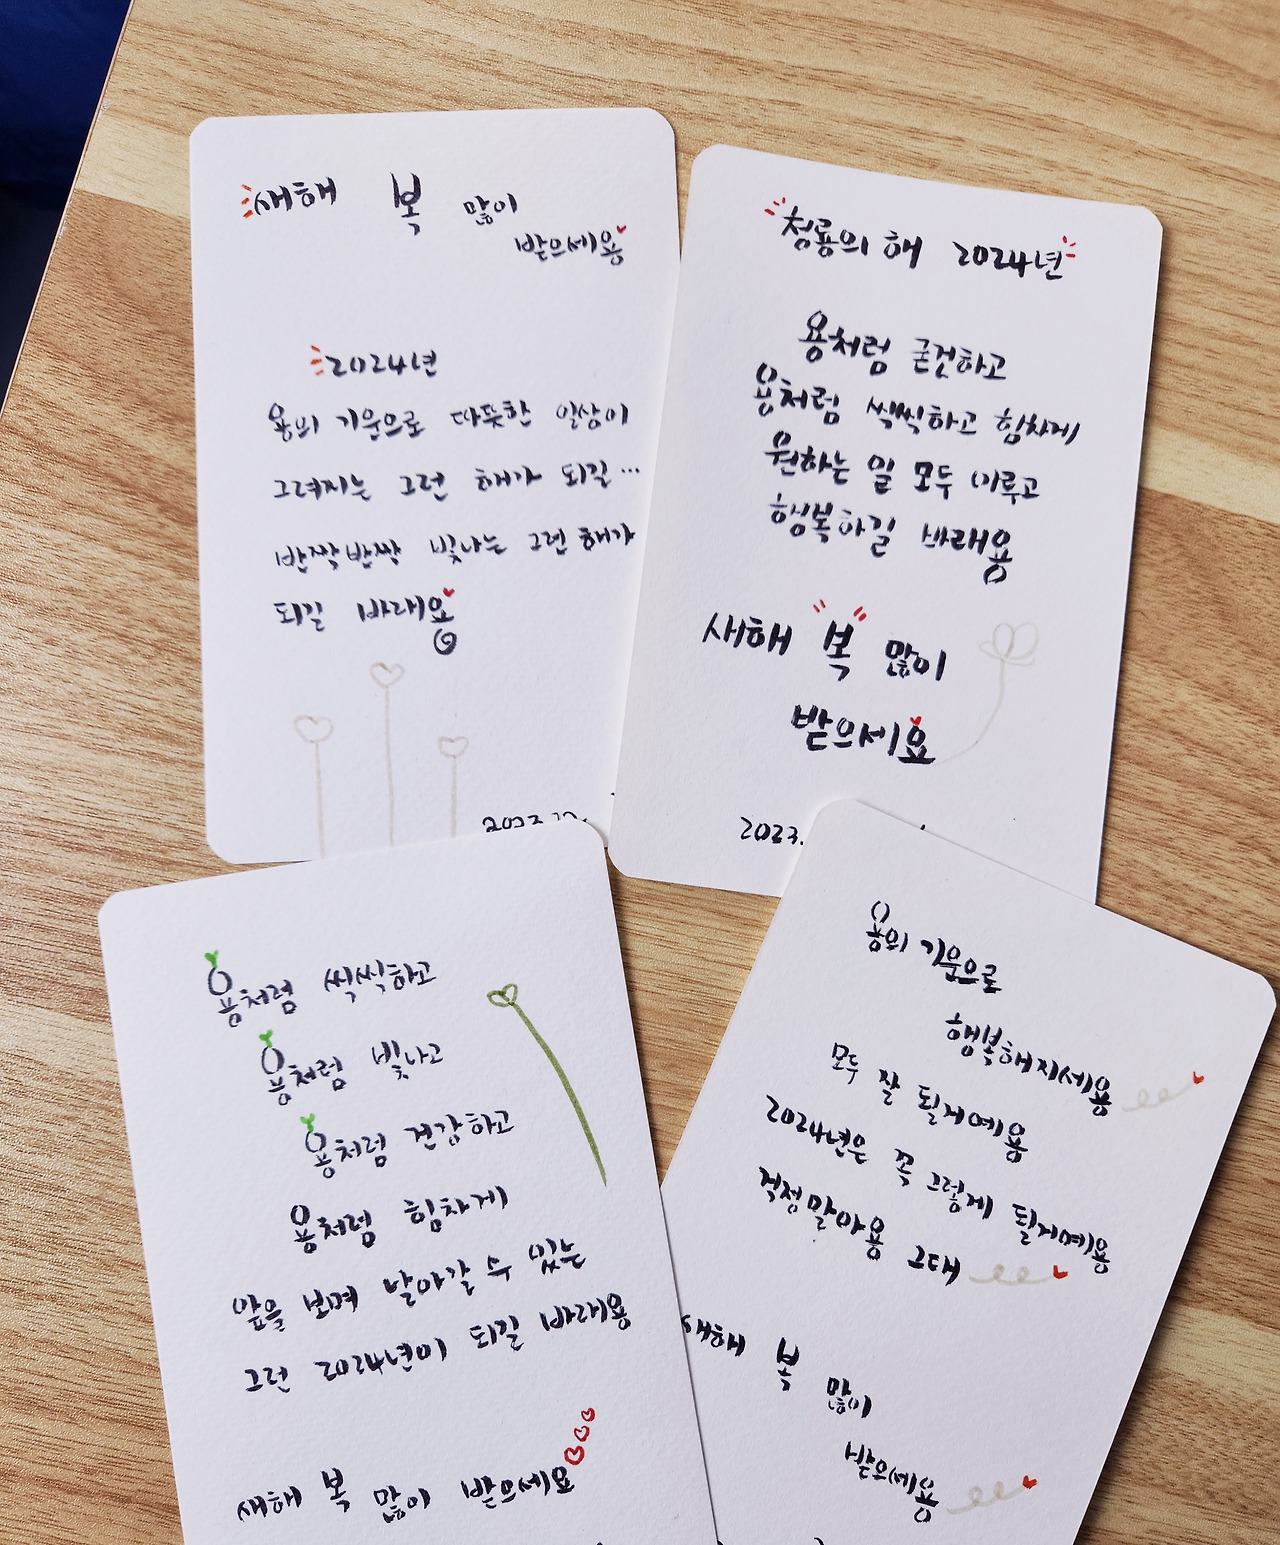 새해 복 많이
받으세용
2024년
용의 기운으로 따뜻한 일상이
그려지는 그런 해가 되길...
반짝반짝 빛나는 그런 해가
되길 바래요
청룡의 해 2024년
용처럼 굳건하고
용처럼 씩씩하고 힘차게
원하는 일 모두 이루고
행복하길 바래용
새해 "복" 많이
받으세요
2023.
용처럼 씩씩하고
용처럼 빛나고
용처럼 건강하고
용처럼 힘차게
앞을 보며 날아갈 수 있는
그런 2024년이 되길 바래용
새해 복 많이 받으세요
용의 기운으로
행복해지세용
모두 잘 될거예용
2024년은 꼭 그렇게 될거예용
걱정말아용 그대
새해 복 많이
받으세용